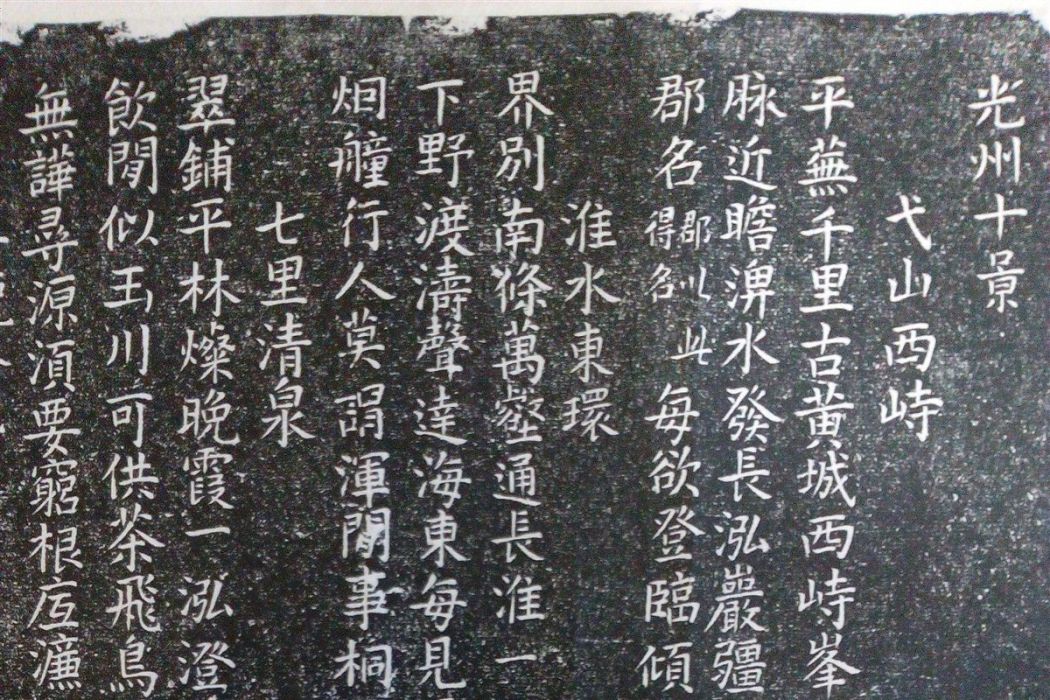 光州十景
弋山西峙
平蕪千里古黃城西峙峯
脉近瞻淠水發長泓嚴疆
郡名郡以此得名每欲登臨傾
淮水東環
界別南條萬壑通長淮一
下野渡濤聲達海東每見
烟艟行人莫謂渾閒事桐
七里清泉
翠鋪平林燦晚霞一泓澄
飲閒似玉川可供茶飛鳥
無譁尋源須要窮根底濂